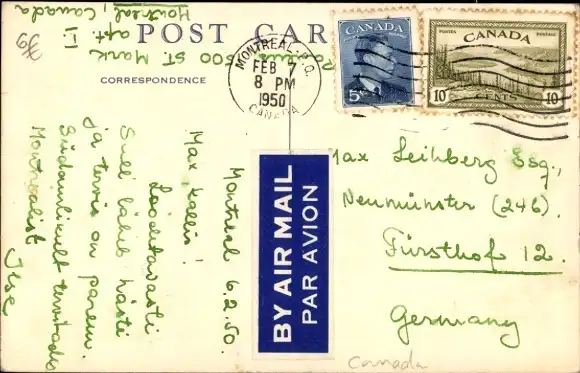 POST CAR
CORRESPONDENCE
MONTREAL P.Q.
FEB 7
8 PM
1950
CANADA
CANADA
5
POSTES POSTAGE
CANADA
10 CENTS 10
BY AIR MAIL
PAR AVION
Max Leihberg Esq.,
Neumünster (24b).
Fürsthof 12.
Germany
Canada
Montreal 6.2.50.
Max, kallis!
Loodetavasti
Sull läheb hästi
ja tervis on parem.
Südamlikult tervitades
Montrealist
Ilse
ST Mark
apt. I
Montreal, Canada